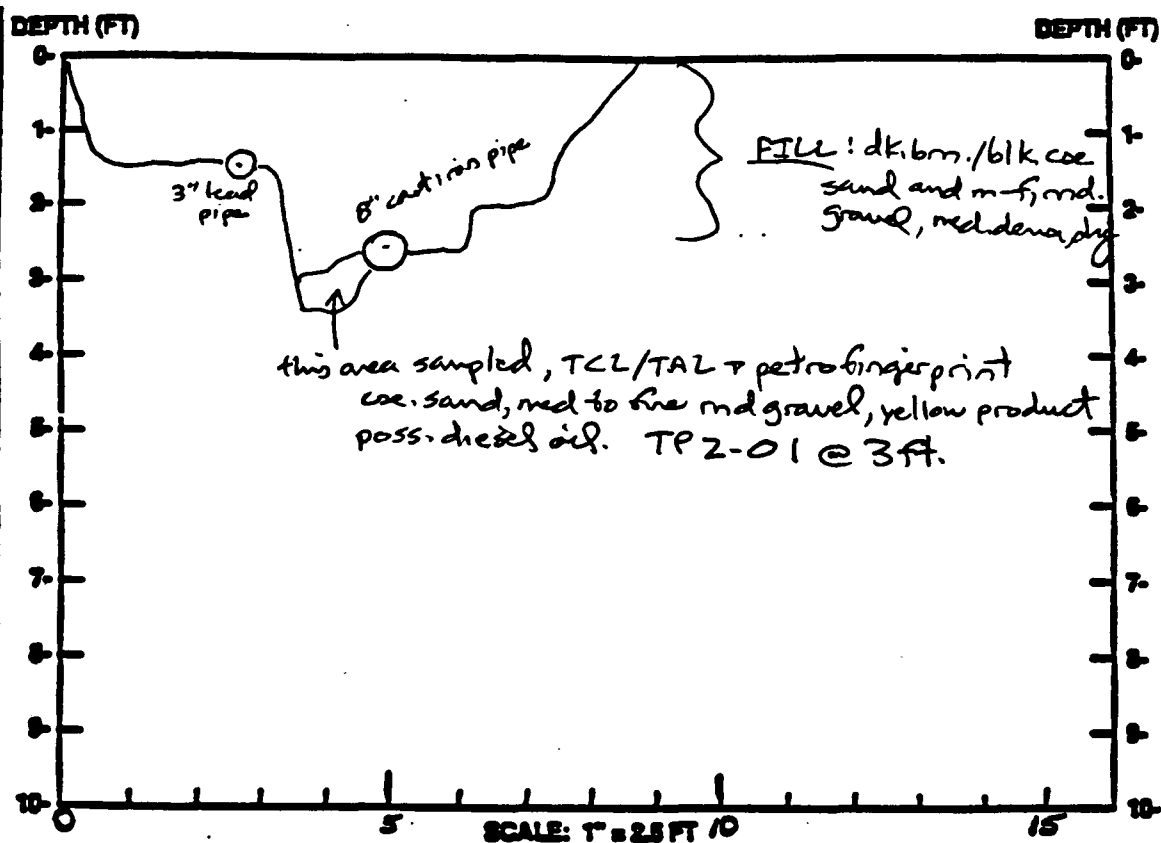 DEPTH (FT)
DEPTH (FT)
0-
0-
1-
1-
2-
2-
3-
3-
4-
4-
5-
5-
6-
6-
7-
7-
8-
8-
9-
9-
10-
10-
3" lead
pipe
8" cast iron pipe
FILL: dk.brn./blk. cse
sand and m-f, rnd.
gravel, med. dense, dry
this area sampled, TCL/TAL + petro fingerprint
cse. sand, med to fine rnd gravel, yellow product
poss. diesel oil. TP2-01 @ 3 ft.
0 5 10 15
SCALE: 1" = 2.5 FT